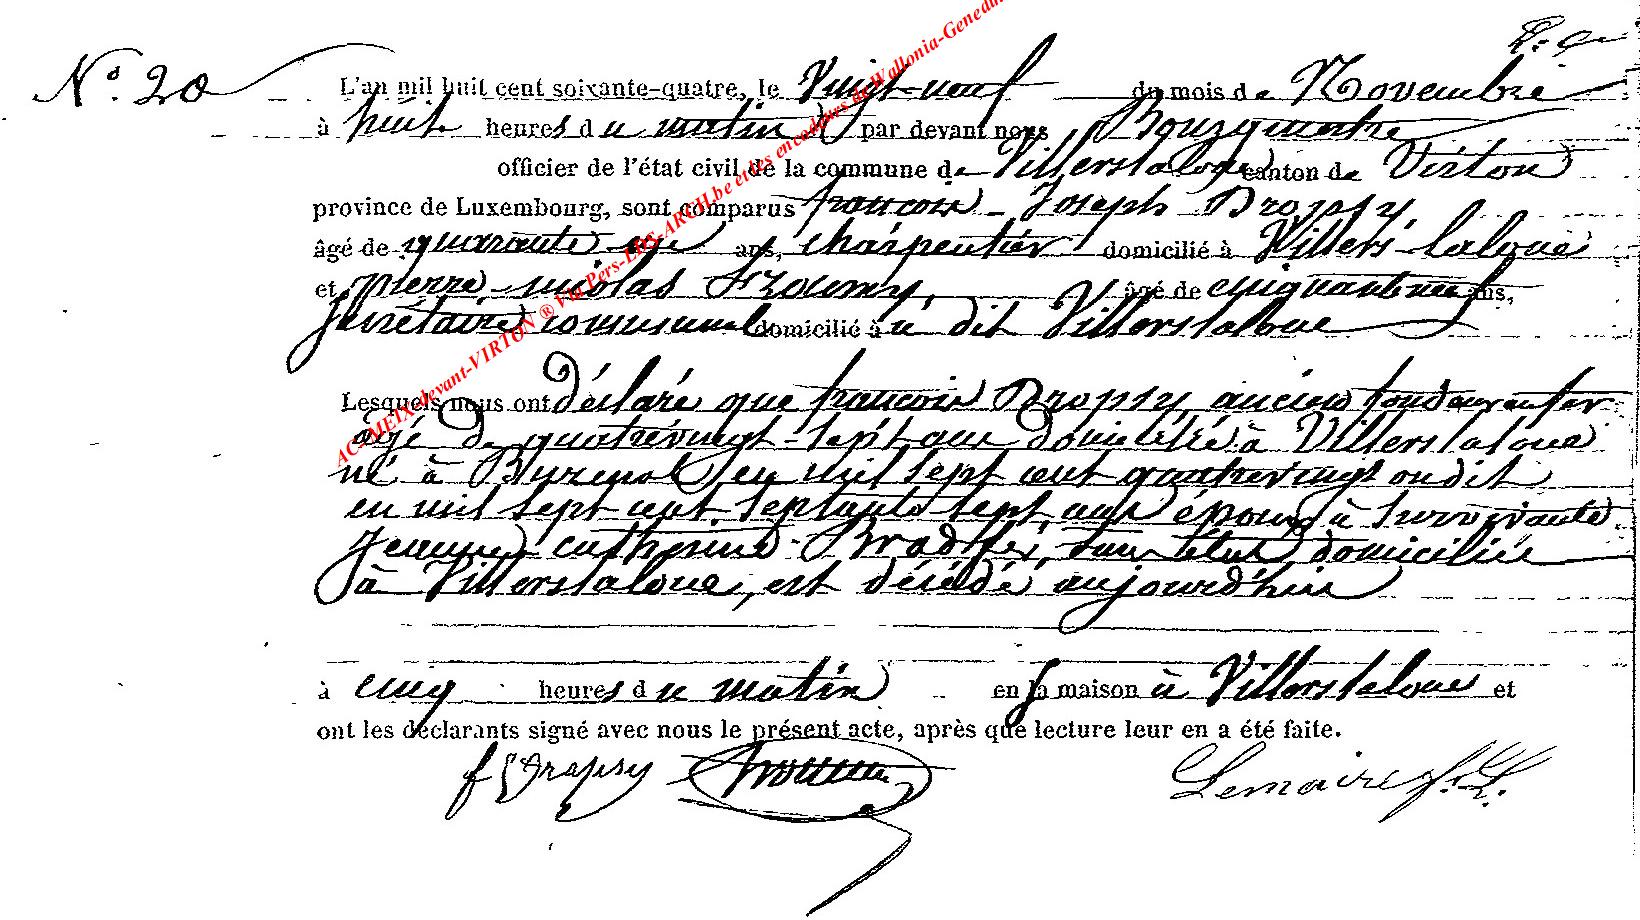 N° 20
L'an mil huit cent soixante-quatre, le Vingt-neuf du mois de Novembre
à huit heures du matin par devant nous Bourgmestre
officier de l'état civil de la commune de Villerslaloue canton de Virton
province de Luxembourg, sont comparus francois Joseph Dropsy,
âgé de quarante ans, charpentier domicilié à Villers-laloue
et pierre nicolas âgé de cinquante neuf ans,
Secrétaire communal domicilié à u dit Villerslaloue
Lesquels nous ont déclaré que francois Dropsy, ancien
agé de quatrévingt-sept ans domicilié à Villerslaloue
né à Buzenol en mil sept cent quatrevingt ou dit
en mil sept cent septante sept ans époux à survivante
Jeanne catherine sans état domiciliée
à Villerslaloue, est décédé aujourd'hui
à cinq heures du matin en sa maison à Villerslaloue et
ont les déclarants signé avec nous le présent acte, après que lecture leur en a été faite.
f J Dropsy Lemaire
AC-MEIX-devant-VIRTON ® Via Pers-LDS-ARCH.be et des encodeurs de Wallonia-Genedin